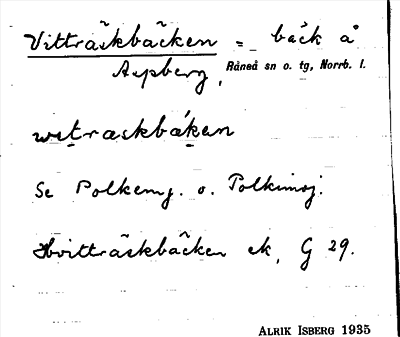 Vitträskbäcken = bäck å
Aspberg, Råneå sn o. tg, Norrb. l.
witraskbäken
Se Polkemj. o. Polkimoj.
Hvitträskbäcken ek, G 29.
ALRIK ISBERG 1935